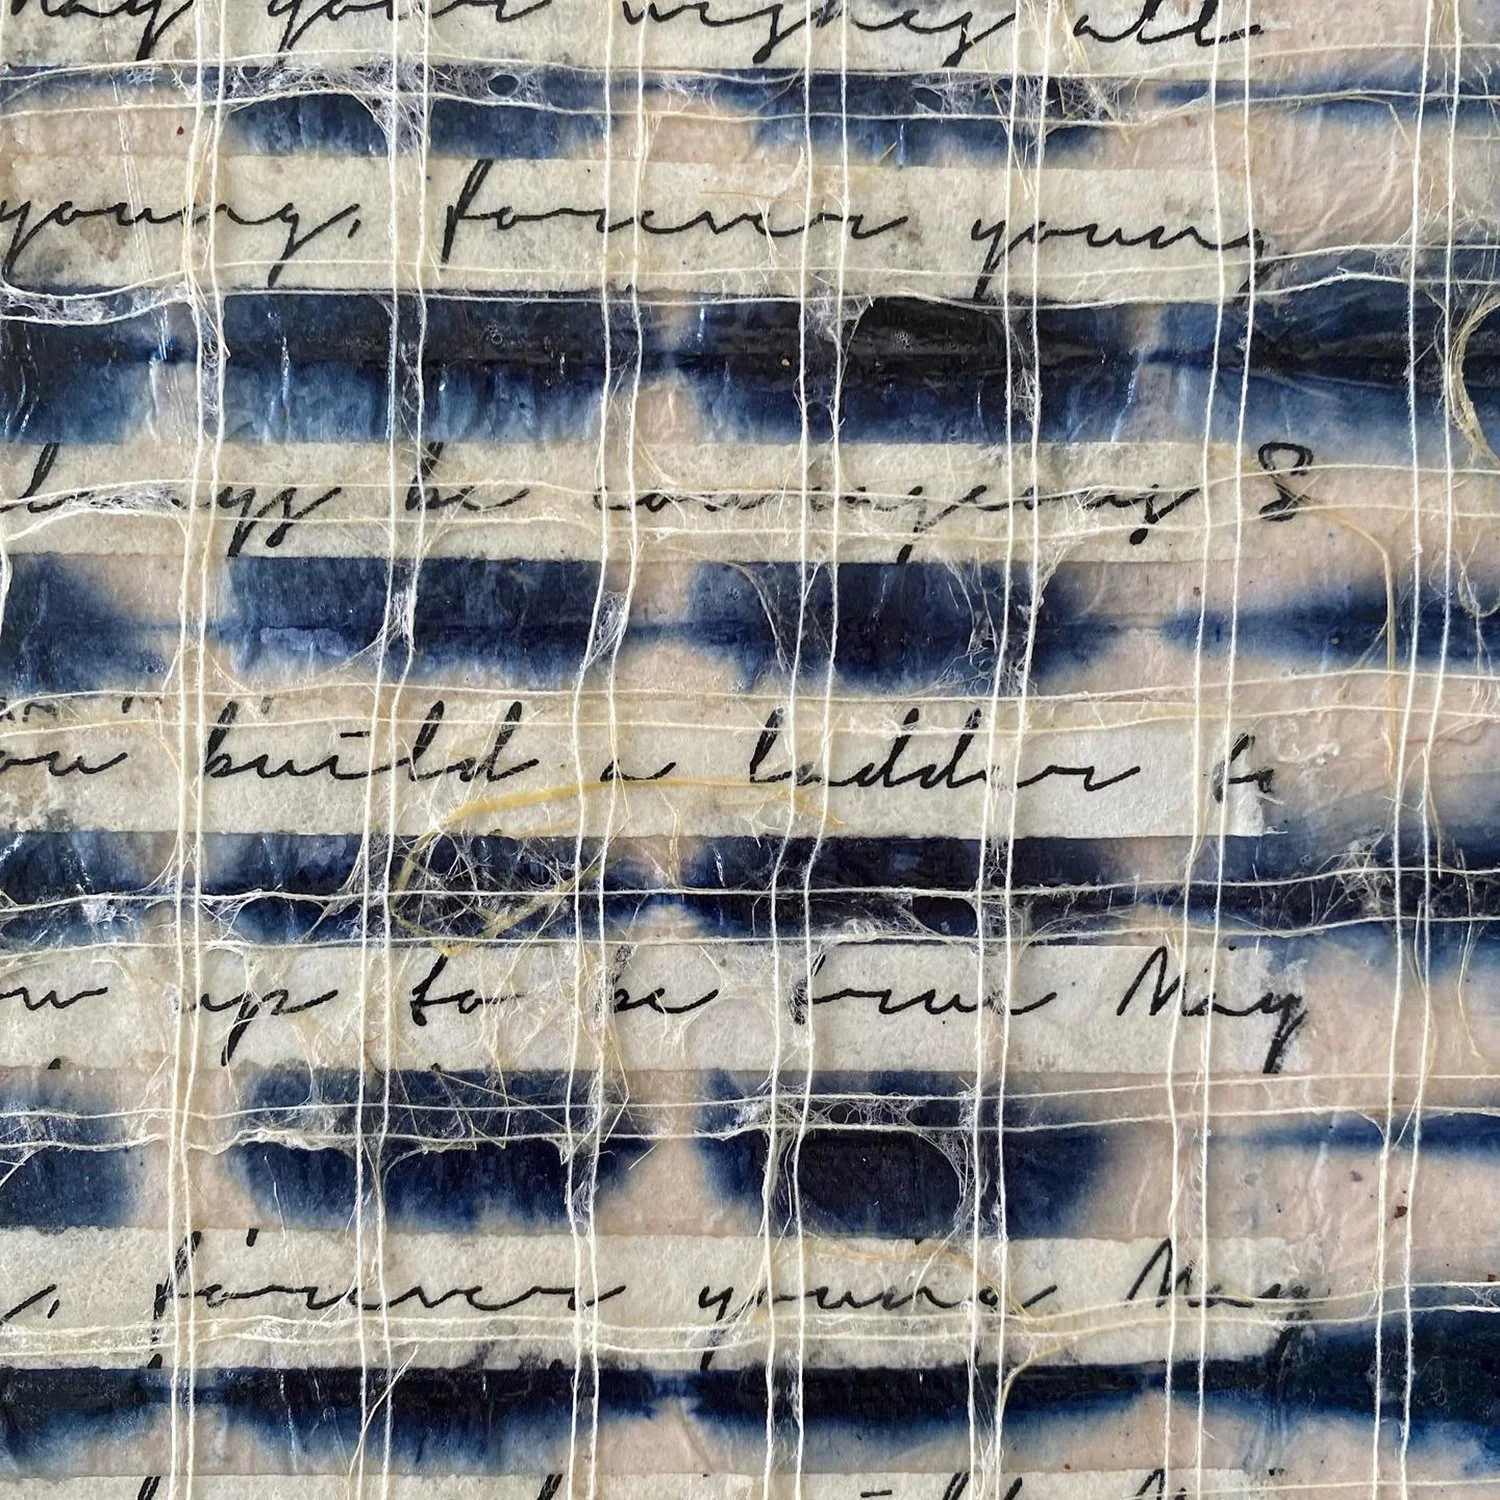 may your wishes all
young, forever young
lways be courageous &
ou build a ladder to
ow up to be true May
, forever young May